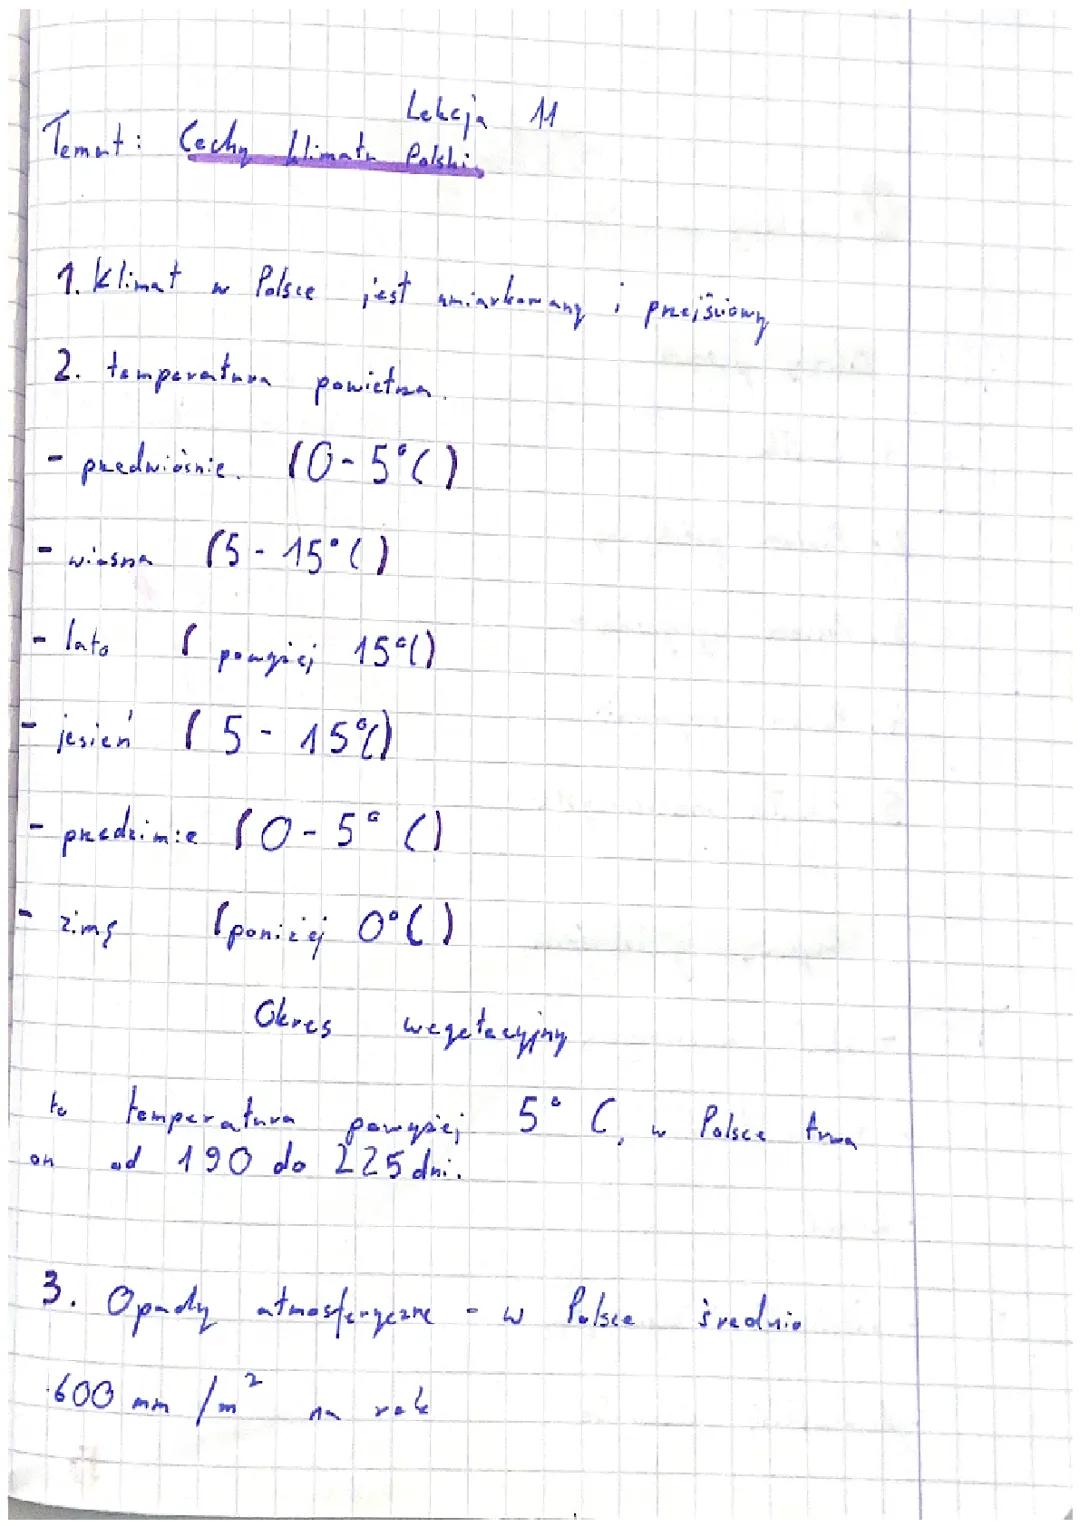 Lekcja 11
Temat: Cechy klimatu Polski
1. Klimat w Polsce jest umiarkowany i przejściowy
2. temperatura powietrza.
- przedwiośnie. (0-5°C)
- wiosna (5-15°C)
- lato (powyżej 15°C)
- jesień (5-15°C)
- przedzimie (0-5°C)
- zimę (poniżej 0°C)
Okres wegetacyjny
to temperatura powyżej 5°C, w Polsce trwa
on od 190 do 225 dni.
3. Opady atmosferyczne - w Polsce średnio
600 mm/m² na rok